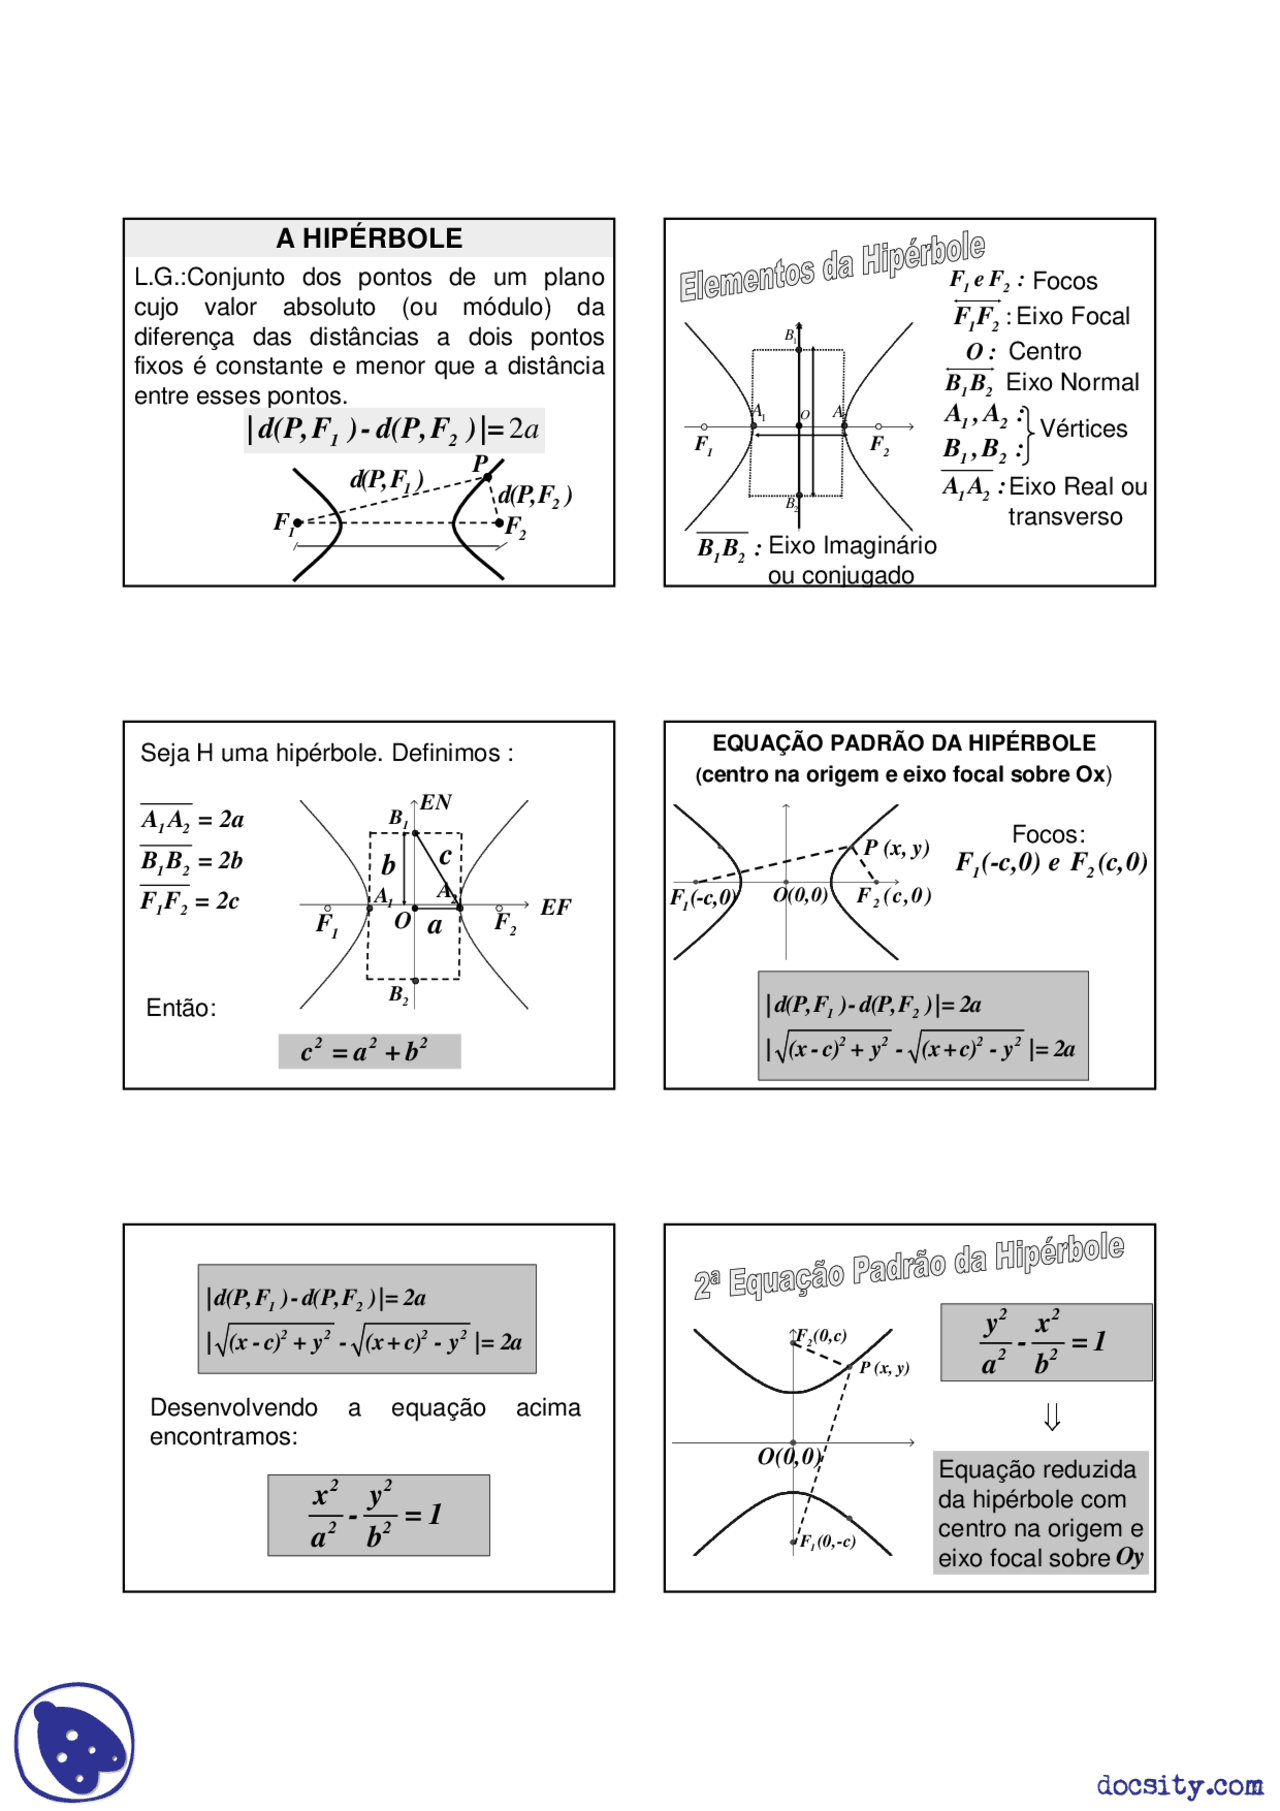 A HIPÉRBOLE
L.G.:Conjunto dos pontos de um plano
cujo valor absoluto (ou módulo) da
diferença das distâncias a dois pontos
fixos é constante e menor que a distância
entre esses pontos.
|d(P,F₁)-d(P,F₂)|=2a
P
d(P,F₁)
d(P,F₂)
F₁
F₂
Elementos da Hipérbole
F₁ e F₂ : Focos
F₁F₂ : Eixo Focal
O : Centro
B₁B₂ Eixo Normal
A₁,A₂ :
B₁,B₂ :
Vértices
A₁A₂ : Eixo Real ou
transverso
B₁
A₁ O A
F₁ F₂
B₂
B₁B₂ : Eixo Imaginário
ou conjugado
Seja H uma hipérbole. Definimos :
A₁A₂ = 2a
B₁B₂ = 2b
F₁F₂ = 2c
EN
B₁
b c
A₁ A₂
EF
F₁ O a F₂
B₂
Então:
c² = a² + b²
EQUAÇÃO PADRÃO DA HIPÉRBOLE
(centro na origem e eixo focal sobre Ox)
Focos:
F₁(-c,0) e F₂(c,0)
P(x,y)
F₁(-c,0) O(0,0) F₂(c,0)
|d(P,F₁)-d(P,F₂)|=2a
|√(x-c)²+y² - √(x+c)²-y² |=2a
|d(P,F₁)-d(P,F₂)|=2a
|√(x-c)²+y² - √(x+c)²-y² |=2a
Desenvolvendo a equação acima
encontramos:
x²/a² - y²/b² = 1
2ª Equação Padrão da Hipérbole
F₂(0,c)
P(x,y)
O(0,0)
F₁(0,-c)
y²/a² - x²/b² = 1
⇓
Equação reduzida
da hipérbole com
centro na origem e
eixo focal sobre Oy
docsity.com